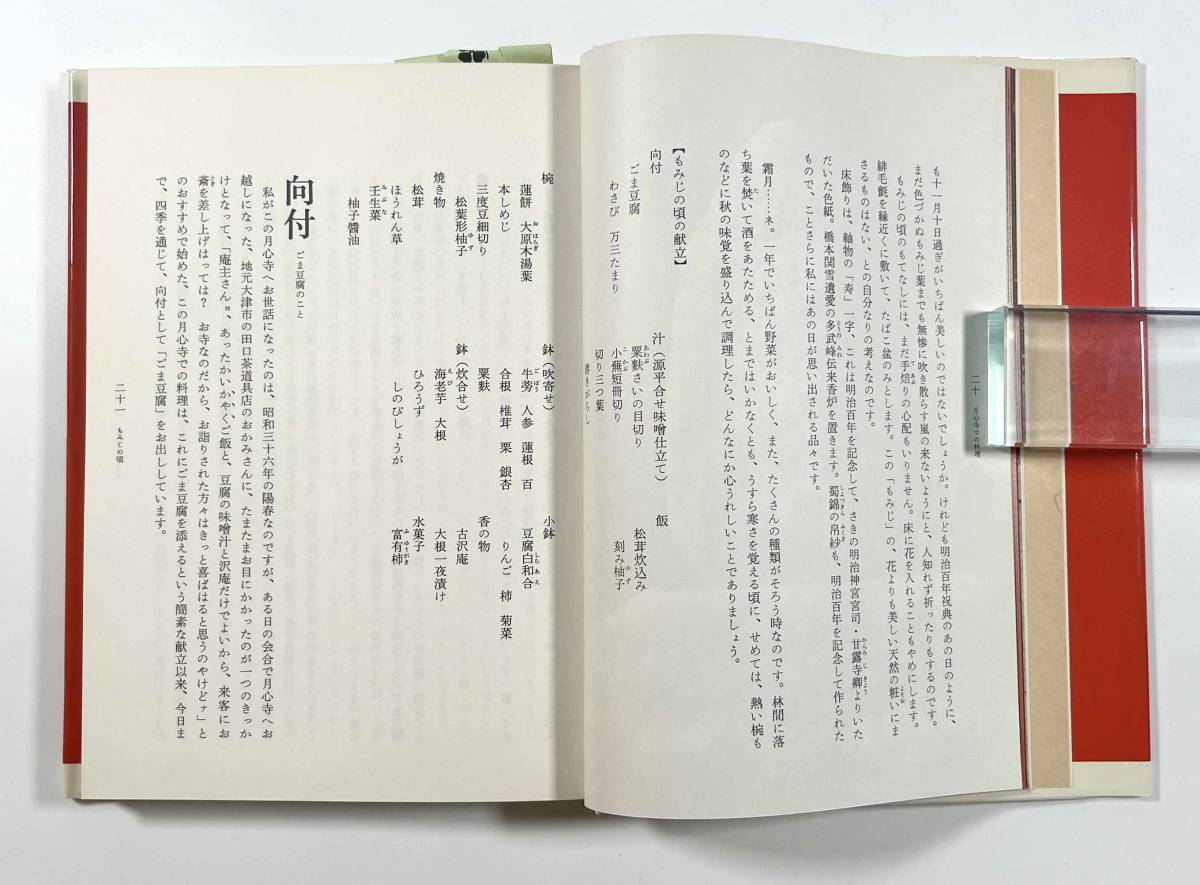 も十一月十日過ぎがいちばん美しいのではないでしょうか。けれども明治百年祝典のあの日のように、
まだ色づかぬもみじ葉までも無惨に吹き散らす嵐の来ないようにと、人知れず祈ったりもするのです。
もみじの頃のもてなしには、まだ手焙りの心配もいりません。床に花を入れることもやめにします。
緋毛氈を縁近くに敷いて、たばこ盆のみとします。この「もみじ」の、花よりも美しい天然の粧いにま
さるものはない、との自分なりの考えなのです。
床飾りは、軸物の「寿」一字、これは明治百年を記念して、さきの明治神宮宮司・甘露寺卿よりいた
だいた色紙。橋本関雪遺愛の多武峰伝来香炉を置きます。蜀錦の帛紗も、明治百年を記念して作られた
もので、ことさらに私にはあの日が思い出される品々です。
霜月……ネ。一年でいちばん野菜がおいしく、また、たくさんの種類がそろう時なのです。林間に落
ち葉を焚いて酒をあたためる、とまではいかなくとも、うすら寒さを覚える頃に、せめては、熱い椀も
のなどに秋の味覚を盛り込んで調理したら、どんなにか心うれしいことでありましょう。
【もみじの頃の献立】
向付
ごま豆腐
わさび 万三たまり
汁(源平合せ味噌仕立て)
粟麩さいの目切り
小蕪短冊切り
切り三つ葉
溶きがらし
飯
松茸炊込み
刻み柚子
二十 月心寺での料理
椀
蓮餅 大原木湯葉
本しめじ
三度豆細切り
松葉形柚子
焼き物
松茸
ほうれん草
壬生菜
柚子醬油
鉢(吹寄せ)
牛蒡 人参 蓮根 百
合根 椎茸 栗 銀杏
粟麩
鉢(炊合せ)
海老芋 大根
ひろうず
しのびしょうが
小鉢
豆腐白和合
りんご 柿 菊菜
香の物
古沢庵
大根一夜漬け
水菓子
富有柿
向付 ごま豆腐のこと
私がこの月心寺へお世話になったのは、昭和三十六年の陽春なのですが、ある日の会合で月心寺へお
越しになった、地元大津市の田口茶道具店のおかみさんに、たまたまお目にかかったのが一つのきっか
けとなって、「庵主さんョ、あったかいかやくご飯と、豆腐の味噌汁と沢庵だけでよいから、来客にお
斎を差し上げはっては? お寺なのだから、お詣りされた方々はきっと喜ばはると思うのやけどァ」と
のおすすめで始めた、この月心寺での料理は、これにごま豆腐を添えるという簡素な献立以来、今日ま
で、四季を通じて、向付として「ごま豆腐」をお出ししています。
二十一 もみじの頃